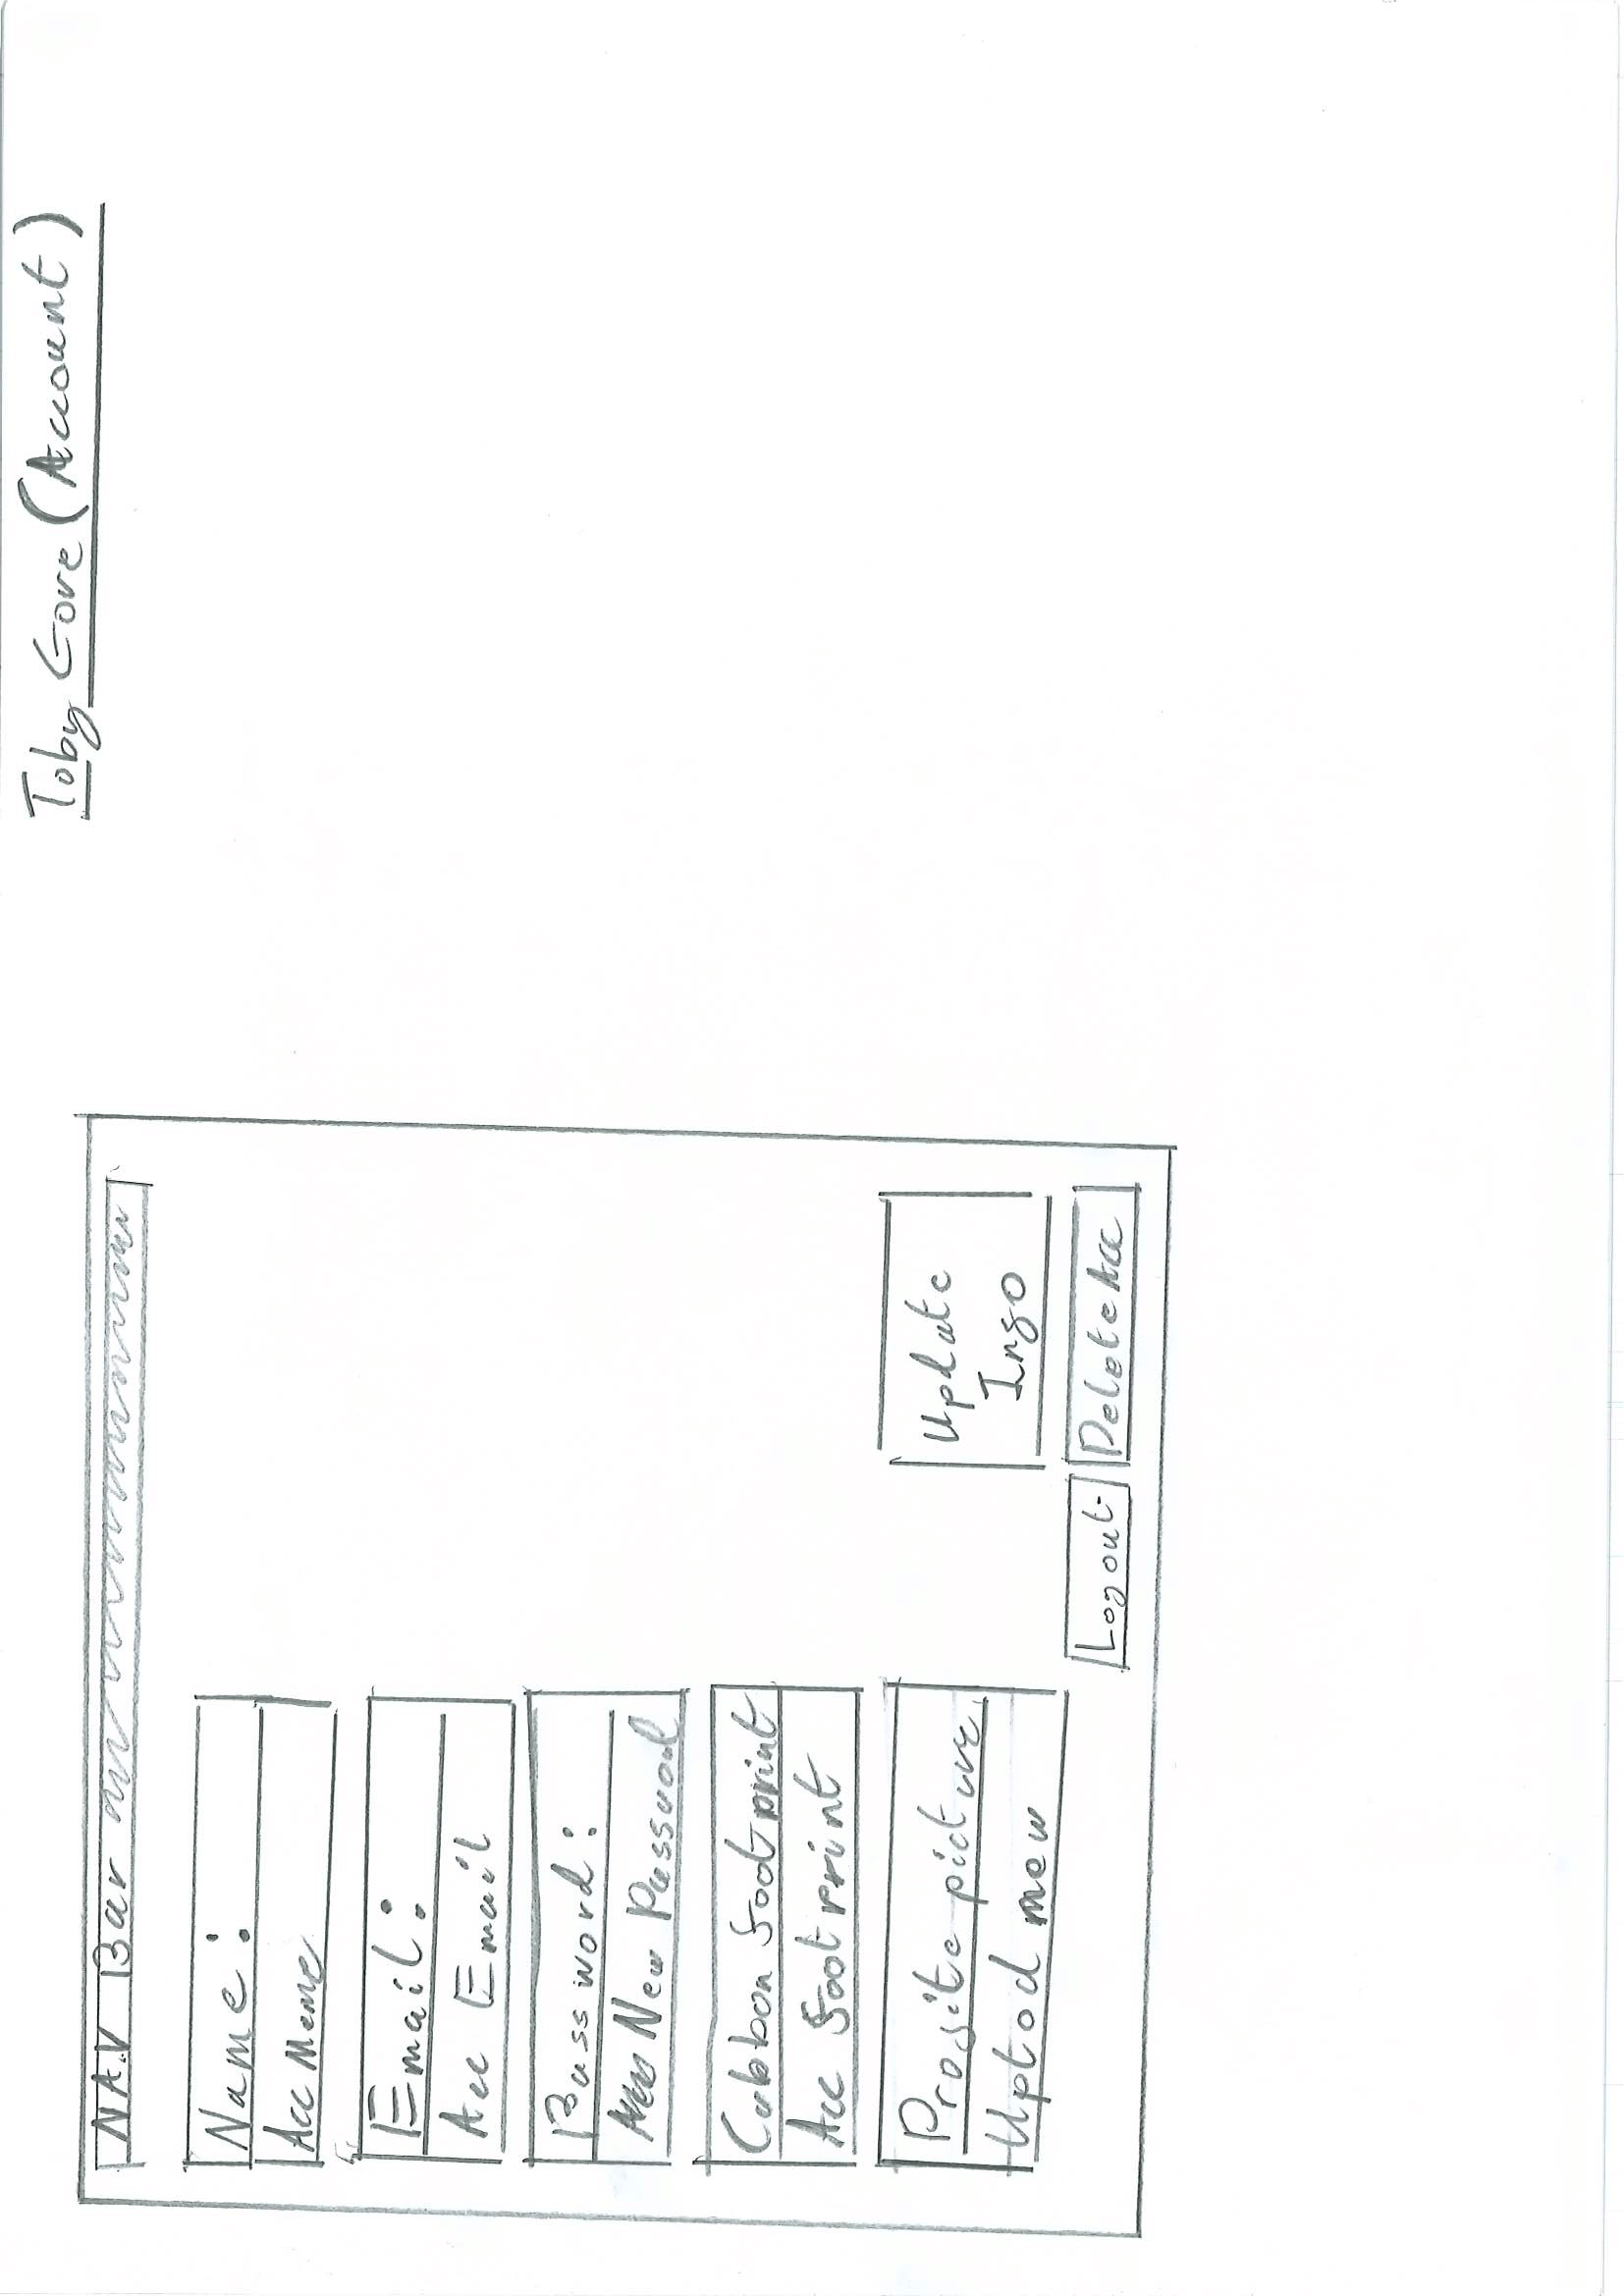 Toby Gore (Account)
NAV Bar
Name:
Acc Name
Email:
Acc Email
Password:
New Password
Carbon footprint
Acc footprint
Profile picture
Uptod new
Update
Info
Logout
Delete Acc